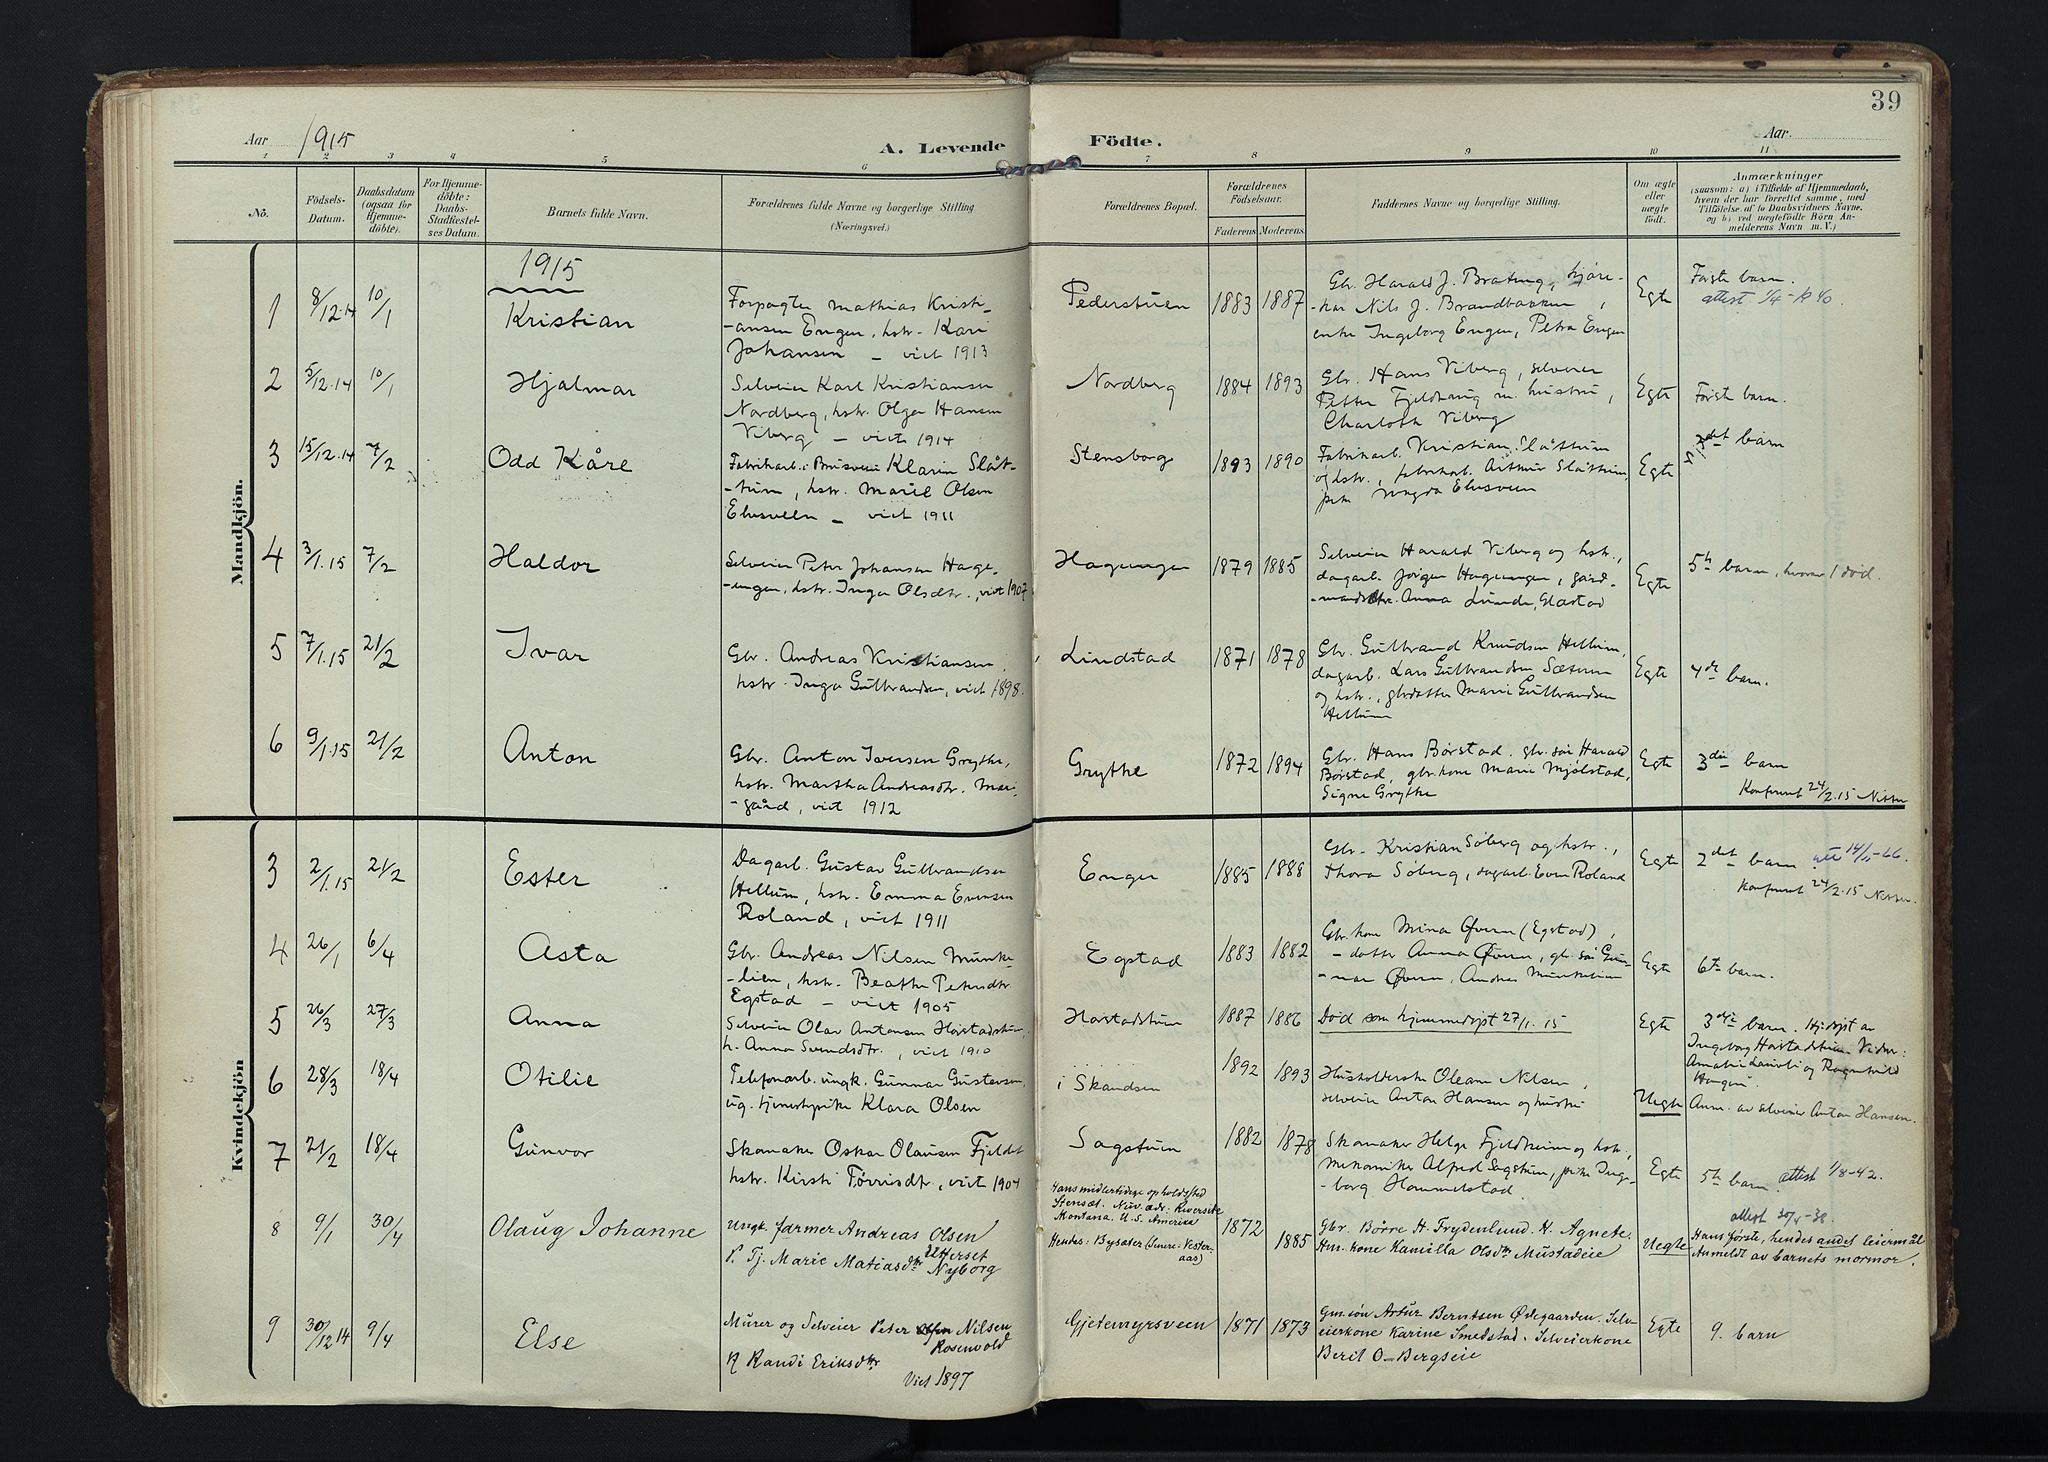 39
Aar 1915
A. Levende Födte.
Aar.
1 2 3 4 5 6 7 8 9 10 11
No.
Födsels-Datum.
Daabsdatum (ogsaa for Hjemme-döbte).
For Hjemme-döbte: Daabs-Stadfæstel-ses Datum.
Barnets fulde Navn.
Forældrenes fulde Navne og borgerlige Stilling.
(Næringsvei.)
Forældrenes Bopæl.
Forældrenes Födselsaar.
Faderens. Moderens.
Faddernes Navne og borgerlige Stilling.
Om ægte eller uægte födt.
Anmærkninger
(saasom: a) i Tilfælde af Hjemmedaab, hvem der har forrettet samme, med Tilföielse af to Daabsvidners Navne, og b) ved uægtefödte Börn An-melderens Navn m. V.)
Mandkjön.
1915
1 8/12.14 10/1 Kristian
Forpagter Mathias Kristi-
-ansen Engen, hstr. Kari
Johansen – viet 1913
Pederstuen 1883 1887
Gbr. Harald J. Bratung, kjøre-
-kar Nils J. Brandbakken,
enke Ingeborg Engen, Petra Engen
Egte
Første barn.
attest 1/4-1940.
2 5/12.14 10/1 Hjalmar
Selveier Karl Kristiansen
Nordberg, hstr. Olga Hansen
Viberg – viet 1914
Nordberg 1884 1893
Gbr. Hans Viberg, selveier
Petter Fjeldhaug m. hustru,
Charlotte Viberg
Egte Første barn.
3 15/12.14 7/2 Odd Kåre
Fabrikarb. i Brusveen Klarin Slåt-
-tum, hstr. Marie Olsen
Elvesveen – viet 1911
Stensborg 1893 1890
Fabrikarb. Kristian Slåttum
og hstr., fabrikarb. Arthur Slåttum,
pike Magda Elvesveen
Egte 2det barn
4 3/1.15 7/2 Haldor
Selveier Peter Johansen Hage-
-ungen, hstr. Inga Olsdtr., viet 1907
Hageungen 1879 1885
Selveier Harald Viberg og hstr.,
dagarb. Jørgen Hageungen, gård-
-mandsktr. Anna Lunde, Glæstad
Egte 5te barn, hvorav 1 død.
5 7/1.15 21/2 Ivar
Gbr. Andreas Kristiansen,
hstr. Inga Gulbrandsen, viet 1898.
Lindstad 1871 1878
Gbr. Gulbrand Knudsen Hellum,
dagarb. Lars Gulbrandsen Sæteren
og hstr., gbrdatter Marie Gulbrandsen
Hellum
Egte 4de barn.
6 9/1.15 21/2 Anton
Gbr. Anton Iversen Grythe,
hstr. Martha Andreasdtr. Mari-
-gård, viet 1912
Grythe 1872 1894
Gbr. Hans Børstad, gbr.søn Harald
Børstad, gbr.kone Marie Mjølstad,
Signe Grythe
Egte 3die barn
Konfirmert 24/2.15 Nissen
Kvindekjön
3 2/1.15 21/2 Ester
Dagarb. Gustav Gulbrandsen
Hellum, hstr. Emma Evensen
Roland, viet 1911
Enger 1885 1888
Gbr. Kristian Søberg og hstr.,
Thora Søberg, dagarb. Even Roland
Egte 2det barn att 14/11-66.
Konfirmert 24/2.15 Nissen.
4 26/1 6/4 Asta
Gbr. Andreas Nilsen Munke-
-lien, hstr. Beathe Petersdtr.
Egstad – viet 1905
Egstad 1883 1882
Gbr. kone Mina Øveren (Egstad),
– datter Anna Øveren, gbr. søn Gun-
-nar Øveren, Andreas Munkelien
Egte 6te barn.
5 26/3 27/3 Anna
Selveier Olav Antonsen Horstadstuen,
h. Anna Svendsdtr., viet 1910
Horstadstuen 1887 1886
Død som hjemmedøpt 27/1.15
Egte 3die barn. Hj.døpt av
Ingeborg Horstadstuen Vidner:
Amalie Lauvli og Ragnhild
Haugen
6 28/3 18/4 Otilie
Telefonarb. ungk. Gunnar Gustavsen,
ug. tjenestepike Klara Olsen
i Skandsen 1892 1893
Husholderske Oleane Nilsen,
selveier Anton Hansen og hustru
Uegte Anm. av selveier Anton Hansen.
7 21/2 18/4 Gunvor
Skomaker Oskar Olausen Fjeldet
hstr. Kirsti Tørrisdtr., viet 1904
Sagstuen 1882 1878
Skomaker Helge Fjeldheim og hstr.,
mekaniker Alfred Sagstuen, pike Inge-
-borg Hommelstad.
Egte 5te barn. attest 1/8-42.
8 9/1 30/4 Olaug Johanne
Ungk. farmer Andreas Olsen Uthersæt
P. Tj. Marie Matiasdtr Nyborg
Hans midlertidige opholdsted
Stensæt. Nuv. adr: Riverside
Montana. U. S. Amerika
Hendes: Bysæter (Senere: Vester-
aas)
1872 1885
Gbr. Börre H. Frydenlund. H. Agnete.
Hm. kone Kamilla Olsdtr Mustadeie
Uegte
attest 30/5-38.
Hans første, hendes andet leiermål
Anmeldt av barnets mormor.
9 30/12 14 9/4 Else
Murer og Selveier Peter Nilsen
Rosenvold
H Randi Eriksdtr
Viet 1897
Gjetemyrsveen 1871 1873
Gmsøn Artur Berntsen Ødegaarden. Selv-
eierkone Karine Smedstad. Selveierkone
Beril O. Bergseie
Egte 9. barn